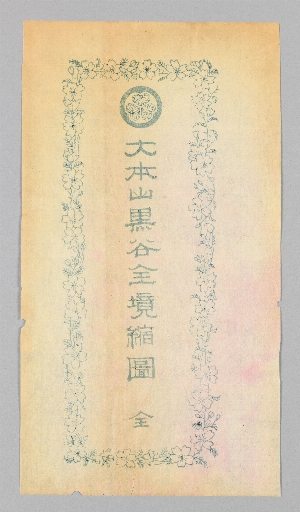 大本山黒谷全境縮圖 全